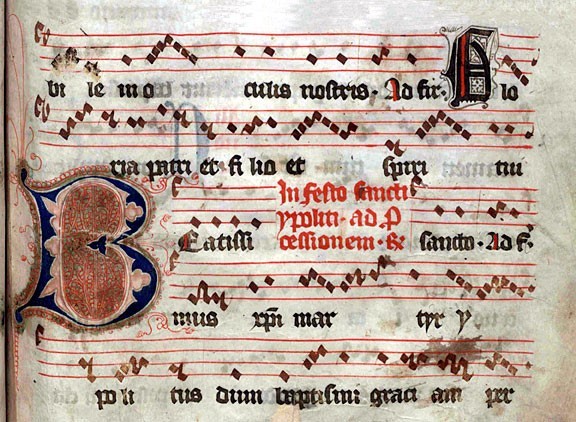 bi le in o culis nostris · Ad fir · A lo
ria patri et fi lio et spiri tui
In festo sancti
ypoliti · ad p
B Eatissi cessionem · R sancto · Ad F ·
mus xpi mar tyr y
po li tus dum baptismi graci am per